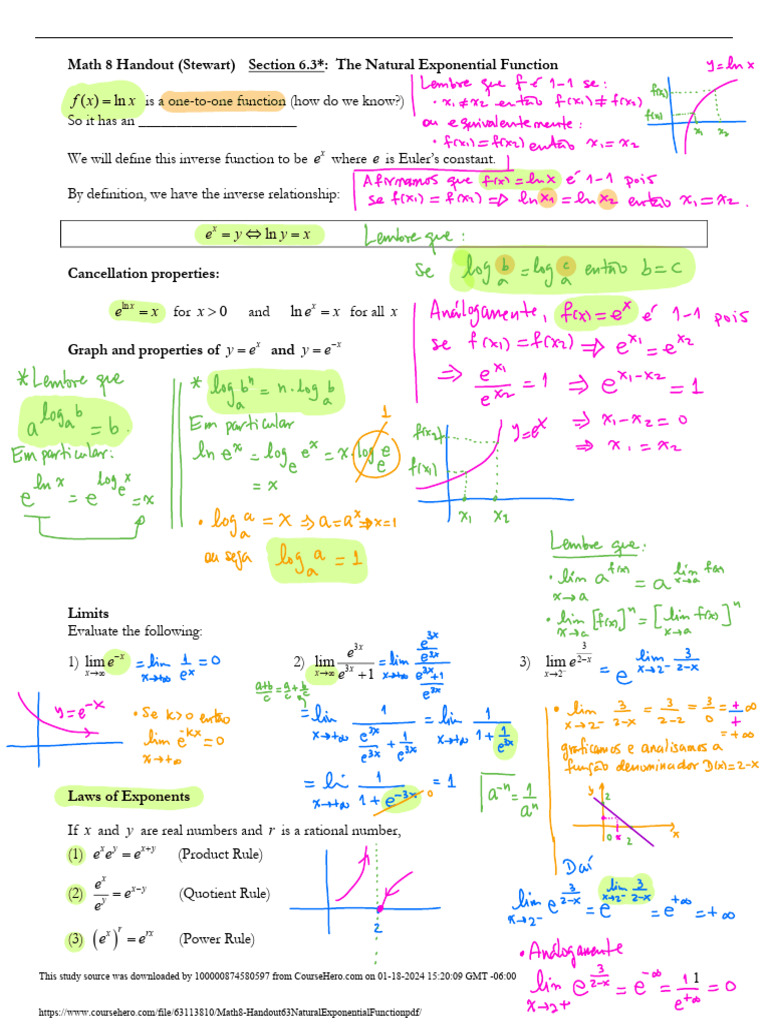 Math 8 Handout (Stewart) Section 6.3*: The Natural Exponential Function
y = ln x
f(x) = ln x is a one-to-one function (how do we know?)
So it has an ____________________
Lembre que f é 1-1 se:
• x₁ ≠ x₂ então f(x₁) ≠ f(x₂)
ou equivalentemente:
• f(x₁) = f(x₂) então x₁ = x₂
f(x₂)
f(x₁)
x₁ x₂
We will define this inverse function to be e^x where e is Euler's constant.
By definition, we have the inverse relationship:
Afirmamos que f(x) = ln x é 1-1 pois
se f(x₁) = f(x₂) ⇒ ln x₁ = ln x₂ então x₁ = x₂.
e^x = y ⇔ ln y = x
Lembre que:
se log_a b = log_a c então b = c
Cancellation properties:
e^(ln x) = x for x > 0 and ln e^x = x for all x
Análogamente, f(x) = e^x é 1-1 pois
se f(x₁) = f(x₂) ⇒ e^(x₁) = e^(x₂)
⇒ e^(x₁)/e^(x₂) = 1 ⇒ e^(x₁-x₂) = 1
⇒ x₁ - x₂ = 0
⇒ x₁ = x₂
Graph and properties of y = e^x and y = e^(-x)
* Lembre que
a^(log_a b) = b.
Em particular:
e^(ln x) = e^(log_e x) = x
* log_a b^n = n·log_a b
Em particular
ln e^x = log_e e^x = x·log_e e
1
= x
• log_a a = x ⇒ a = a^x ⇒ x = 1
ou seja log_a a = 1
y = e^x
f(x₂)
f(x₁)
x₁ x₂
Lembre que:
• lim x→a a^(f(x)) = a^(lim x→a f(x))
• lim x→a [f(x)]^n = [lim x→a f(x)]^n
Limits
Evaluate the following:
1) lim x→∞ e^(-x) = lim x→+∞ 1/e^x = 0
y = e^(-x)
• Se k>0 então
lim x→+∞ e^(-kx) = 0
2) lim x→∞ e^(3x)/(e^(3x)+1) = lim x→+∞ (e^(3x)/e^(3x))/((e^(3x)+1)/e^(3x))
(a+b)/c = a/c + b/c
= lim x→+∞ 1/(e^(3x)/e^(3x) + 1/e^(3x)) = lim x→+∞ 1/(1 + 1/e^(3x))
= li x→+∞ 1/(1 + e^(-3x)) = 1
0
a^(-n) = 1/a^n
3) lim x→2⁻ e^(3/(2-x)) = e^(lim x→2⁻ 3/(2-x))
• lim x→2⁻ 3/(2-x) = 3/(2-2) = 3/0 = +/+ ∞
= +∞
graficamos e analisamos a
função denominador D(x) = 2-x
y
2
0 x 2 x
Daí
lim x→2⁻ e^(3/(2-x)) = e^(lim x→2⁻ 3/(2-x)) = e^(+∞) = +∞
• Análogamente
lim x→2+ e^(3/(2-x)) = e^(-∞) = 1/e^(+∞) = 0
Laws of Exponents
If x and y are real numbers and r is a rational number,
(1) e^x e^y = e^(x+y) (Product Rule)
(2) e^x/e^y = e^(x-y) (Quotient Rule)
(3) (e^x)^r = e^(rx) (Power Rule)
2
1
This study source was downloaded by 100000874580597 from CourseHero.com on 01-18-2024 15:20:09 GMT -06:00
https://www.coursehero.com/file/63113810/Math8-Handout63NaturalExponentialFunctionpdf/